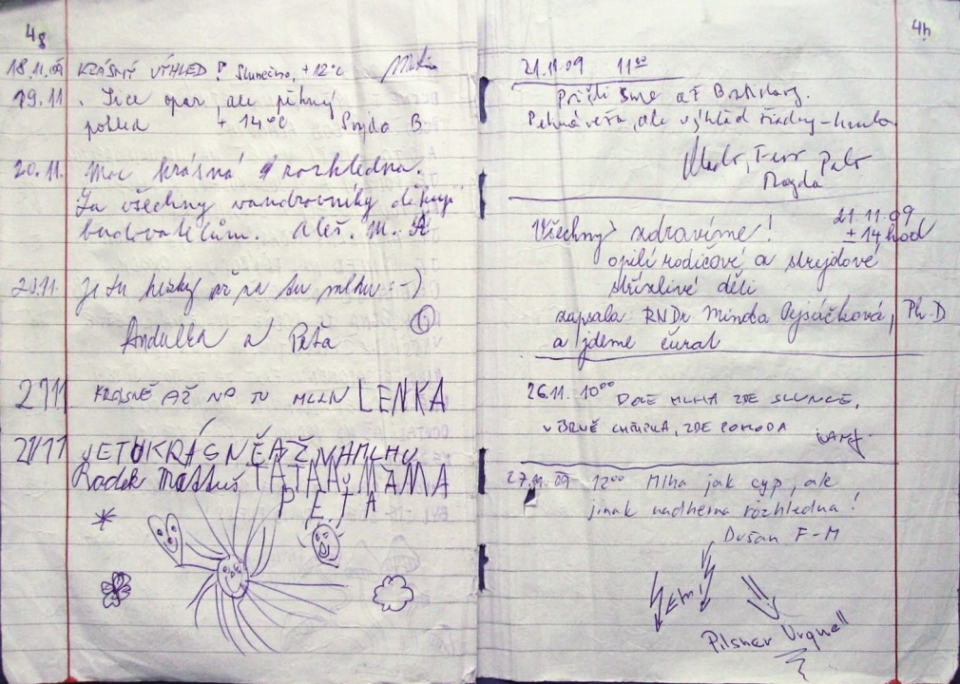 4g
18.11.09 KRÁSNÝ VÝHLED! Slunečno, +12°C
19.11. Sice opar, ale pěkný
pohled +14°C B
20.11. Moc krásná rozhledna.
Za všechny vandrovníky děkuji
budovatelům. Aleš. M.
21.11. je tu hezky až na tu mlhu :-)
Andulka a Péťa
21/11 KRÁSNĚ AŽ NA TU MLHU LENKA
21/11 JE TU KRÁSNĚ AŽ NA MLHU
Radek Matouš TÁTA A MÁMA
PÉŤA
4h
21.11.09 11⁰⁰
Přišli sme až Bratislavy.
Pekná veža, ale výhľad žiadny - hmla
Petr
Magda
21.11.09
± 14 hod
Všechny zdravíme!
opilí rodičové a strejdové
střízlivé děti
zapsala RNDr Minda Pyšáčková, Ph.D
a jdeme čůrat
26.11. 10⁰⁰ DOLE MLHA ZDE SLUNCE,
V BRNĚ CHŘIPKA, ZDE POHODA
27.11.09 12⁰⁰ Mlha jak cyp, ale
jinak nadherna rozhledna!
Dušan F-M
Pilsner Urquell